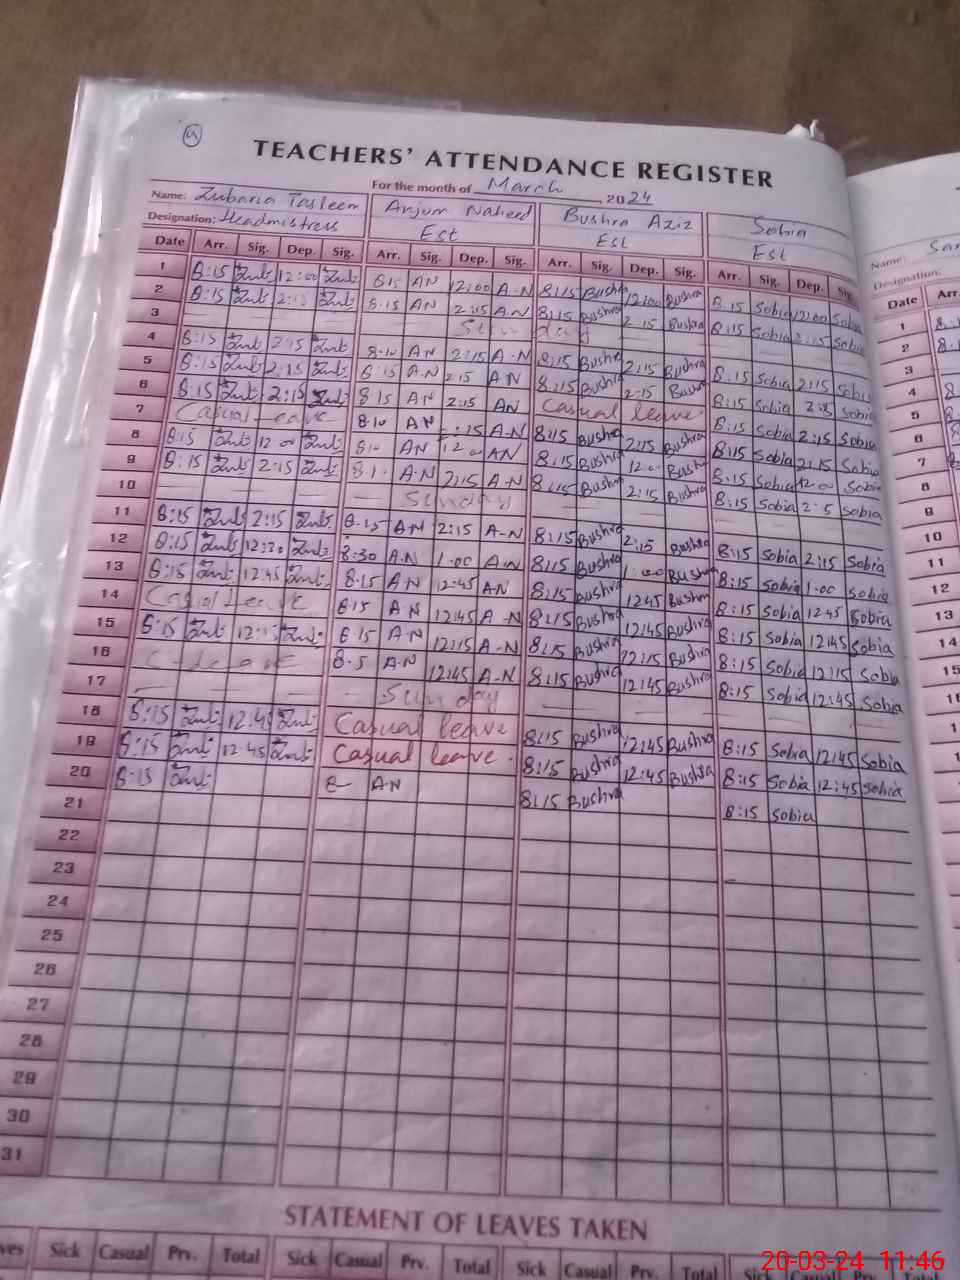 TEACHERS' ATTENDANCE REGISTER
For the month of March, 2024
Name: Zubaria Tasleem Anjum Naheed Bushra Aziz Sobia
Designation: Headmistress Est Est Est
Date Arr. Sig. Dep. Sig. Arr. Sig. Dep. Sig. Arr. Sig. Dep. Sig. Arr. Sig. Dep. Sig.
1 8:15 12:00 8:15 AN 12:00 A-N 8:15 Bushra 12:00 Bushra 8:15 Sobia 12:00 Sobia
2 8:15 2:15 8:15 AN 2:15 A-N 8:15 Bushra 2:15 Bushra 8:15 Sobia 2:15 Sobia
3 Sunday
4 8:15 2:15 8-10 AN 2:15 A-N 8:15 Bushra 2:15 Bushra 8:15 Sobia 2:15 Sobia
5 8:15 2:15 8:15 A-N 2:15 AN 8:15 Bushra 2:15 8:15 Sobia Sobia
6 8:15 2:15 8:15 AN 2:15 AN Casual leave 8:15 Sobia 2:15 Sobia
7 Casual Leave 8-10 AN 2:15 A-N 8:15 Bushra 2:15 Bushra 8:15 Sobia 2:15 Sobia
8 8:15 12:00 AN 12:00 AN 8:15 Bushra 12:00 Bushra 8:15 Sobia 12:00 Sobia
9 8:15 2:15 A-N 2:15 A-N 8:15 Bushra 2:15 Bushra 8:15 Sobia Sobia
10 Sunday
11 8:15 2:15 8-15 AN 2:15 A-N 8:15 Bushra 2:15 Bushra 8:15 Sobia 2:15 Sobia
12 8:15 12:30 8:30 A.N 1-00 A-N 8:15 Bushra 1:00 Bushra 8:15 Sobia 1-00 Sobia
13 8:15 12:45 8-15 AN 12:45 AN 8:15 Bushra 12:45 Bushra 8:15 Sobia 12:45 Sobia
14 Casual Leave 8:15 AN 12:45 A-N 8:15 Bushra 12:45 Bushra 8:15 Sobia 12:45 Sobia
15 8:15 12:15 8-15 A-N 12:15 A-N 8:15 Bushra 12:15 Bushra 8:15 Sobia 12:15 Sobia
16 C-leave A-N 12:45 A-N 8:15 Bushra 12:45 Bushra 8:15 Sobia 12:45 Sobia
17 Sunday
18 8:15 12:45 Casual leave 8:15 Bushra 12:45 Bushra 8:15 Sobia 12:45 Sobia
19 8:15 12:45 Casual leave. 8:15 Bushra 12:45 Bushra 8:15 Sobia 12:45 Sobia
20 8:15 8- A-N 8:15 Bushra 8:15 Sobia
21
22
23
24
25
26
27
28
29
30
31
STATEMENT OF LEAVES TAKEN
Sick Casual Prv. Total Sick Casual Prv. Total Sick Casual Prv. Total Sick
Name:
Designation:
Date Arr.
1
2
3
4
5
6
7
8
9
10
11
12
13
14
15
20-03-24 11:46